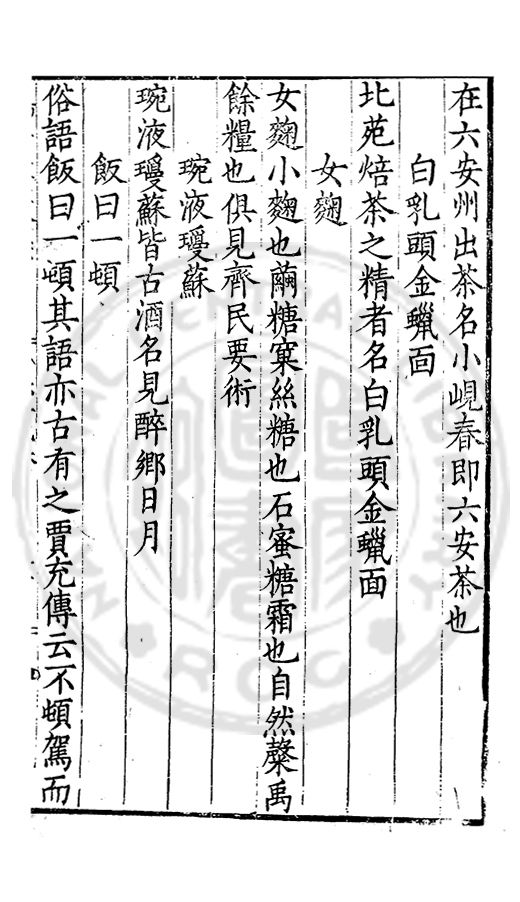 在六安州出茶名小峴春即六安茶也
白乳頭金蠟面
北苑焙茶之精者名白乳頭金蠟面
女麴
女麴小麴也繭糖窠絲糖也石蜜糖霜也自然蘖禹
餘糧也俱見齊民要術
琬液瓊蘇
琬液瓊蘇皆古酒名見醉鄉日月
飯曰一頓
俗語飯曰一頓其語亦古有之賈充傳云不頓駕而